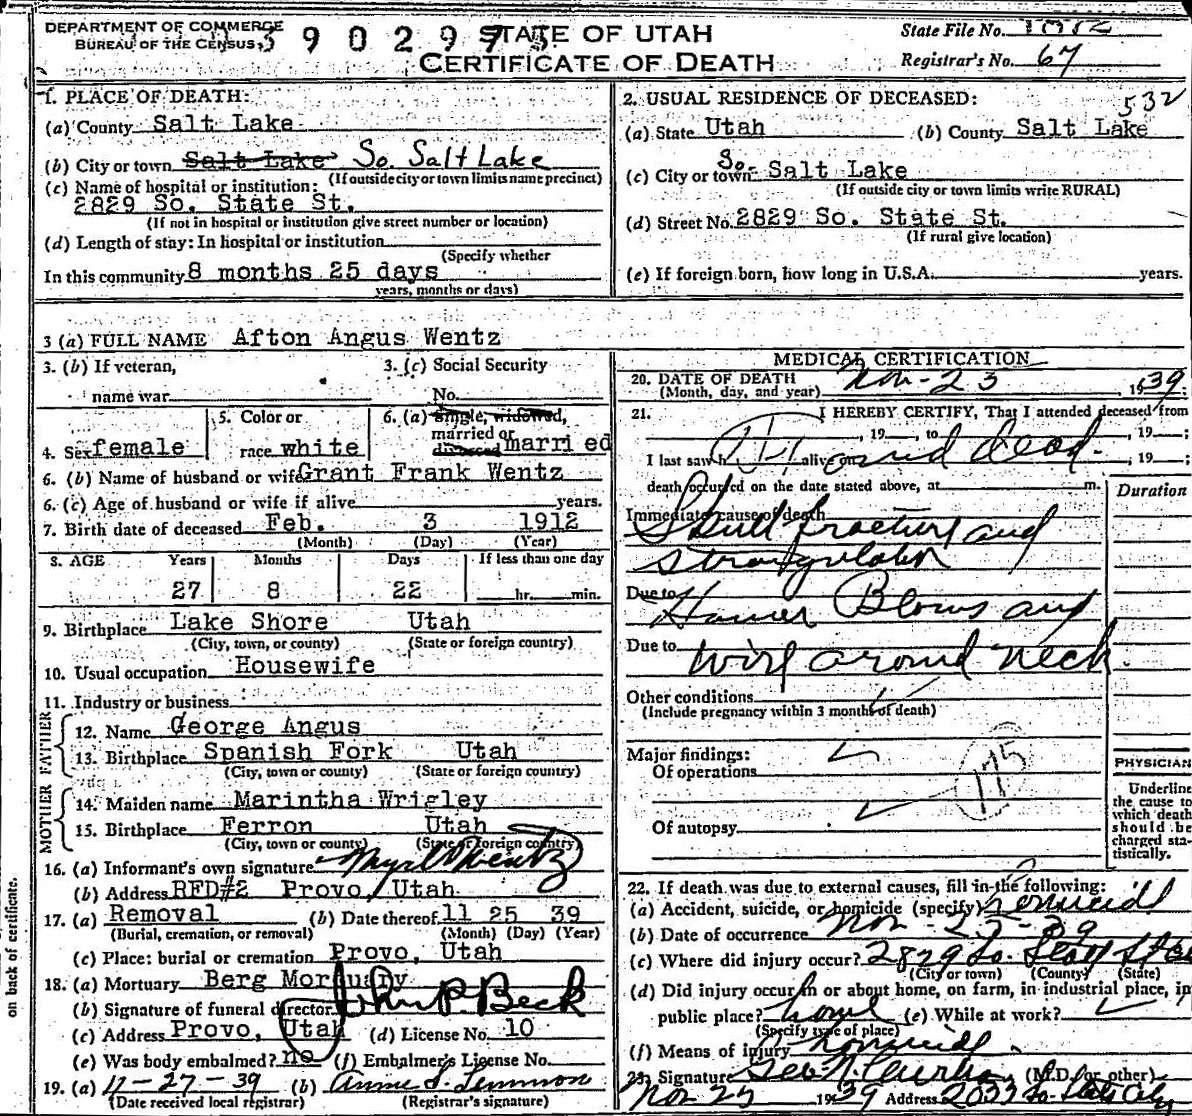 DEPARTMENT OF COMMERCE
BUREAU OF THE CENSUS
STATE OF UTAH
CERTIFICATE OF DEATH
State File No.
Registrar's No. 67
1. PLACE OF DEATH:
(a) County Salt Lake
(b) City or town Salt Lake So. Salt Lake
(If outside city or town limits name precinct)
(c) Name of hospital or institution:
2829 So. State St.
(If not in hospital or institution give street number or location)
(d) Length of stay: In hospital or institution
(Specify whether
In this community 8 months 25 days
years, months or days)
2. USUAL RESIDENCE OF DECEASED: 532
(a) State Utah (b) County Salt Lake
(c) City or town So. Salt Lake
(If outside city or town limits write RURAL)
(d) Street No. 2829 So. State St.
(If rural give location)
(e) If foreign born, how long in U.S.A. years.
3 (a) FULL NAME Afton Angus Wentz
3. (b) If veteran,
name war
3. (c) Social Security
No.
4. Sex female
5. Color or
race white
6. (a) Single, widowed,
married or
divorced married
6. (b) Name of husband or wife Grant Frank Wentz
6. (c) Age of husband or wife if alive years.
7. Birth date of deceased Feb. 3 1912
(Month) (Day) (Year)
8. AGE Years Months Days If less than one day
27 8 22 hr. min.
9. Birthplace Lake Shore Utah
(City, town, or county) (State or foreign country)
10. Usual occupation Housewife
11. Industry or business
FATHER
12. Name George Angus
13. Birthplace Spanish Fork Utah
(City, town or county) (State or foreign country)
MOTHER
14. Maiden name Marintha Wrigley
15. Birthplace Ferron Utah
(City, town or county) (State or foreign country)
16. (a) Informant's own signature Wentz
(b) Address RFD#2 Provo, Utah
17. (a) Removal (b) Date thereof 11 25 39
(Burial, cremation, or removal) (Month) (Day) (Year)
(c) Place: burial or cremation Provo, Utah
18. (a) Mortuary Berg Mortuary
(b) Signature of funeral director John P. Beck
(c) Address Provo, Utah (d) License No. 10
(e) Was body embalmed? no (f) Embalmer's License No.
19. (a) 11-27-39 (b) Annie S. Lemmon
(Date received local registrar) (Registrar's signature)
MEDICAL CERTIFICATION
20. DATE OF DEATH Nov-23 1939
(Month, day, and year)
21. I HEREBY CERTIFY, That I attended deceased from
, 19 , to , 19 ;
I last saw h alive on found dead. , 19 ;
death occurred on the date stated above, at m.
Duration
Immediate cause of death
Skull fracture and
strangulation
Due to Hamer Blows and
Due to wire around neck.
Other conditions
(Include pregnancy within 3 months of death)
Major findings:
Of operations
175
Of autopsy
PHYSICIAN
Underline
the cause to
which death
should be
charged sta-
tistically.
22. If death was due to external causes, fill in the following:
(a) Accident, suicide, or homicide (specify) homicide
(b) Date of occurrence Nov-23-39
(c) Where did injury occur? 2829 So. State St
(City or town) (County) (State)
(d) Did injury occur in or about home, on farm, in industrial place, in
public place? home (e) While at work?
(Specify type of place)
(f) Means of injury homicide
23. Signature (M.D. or other)
Nov 25 1939 Address 2033 So. State City
on back of certificate.